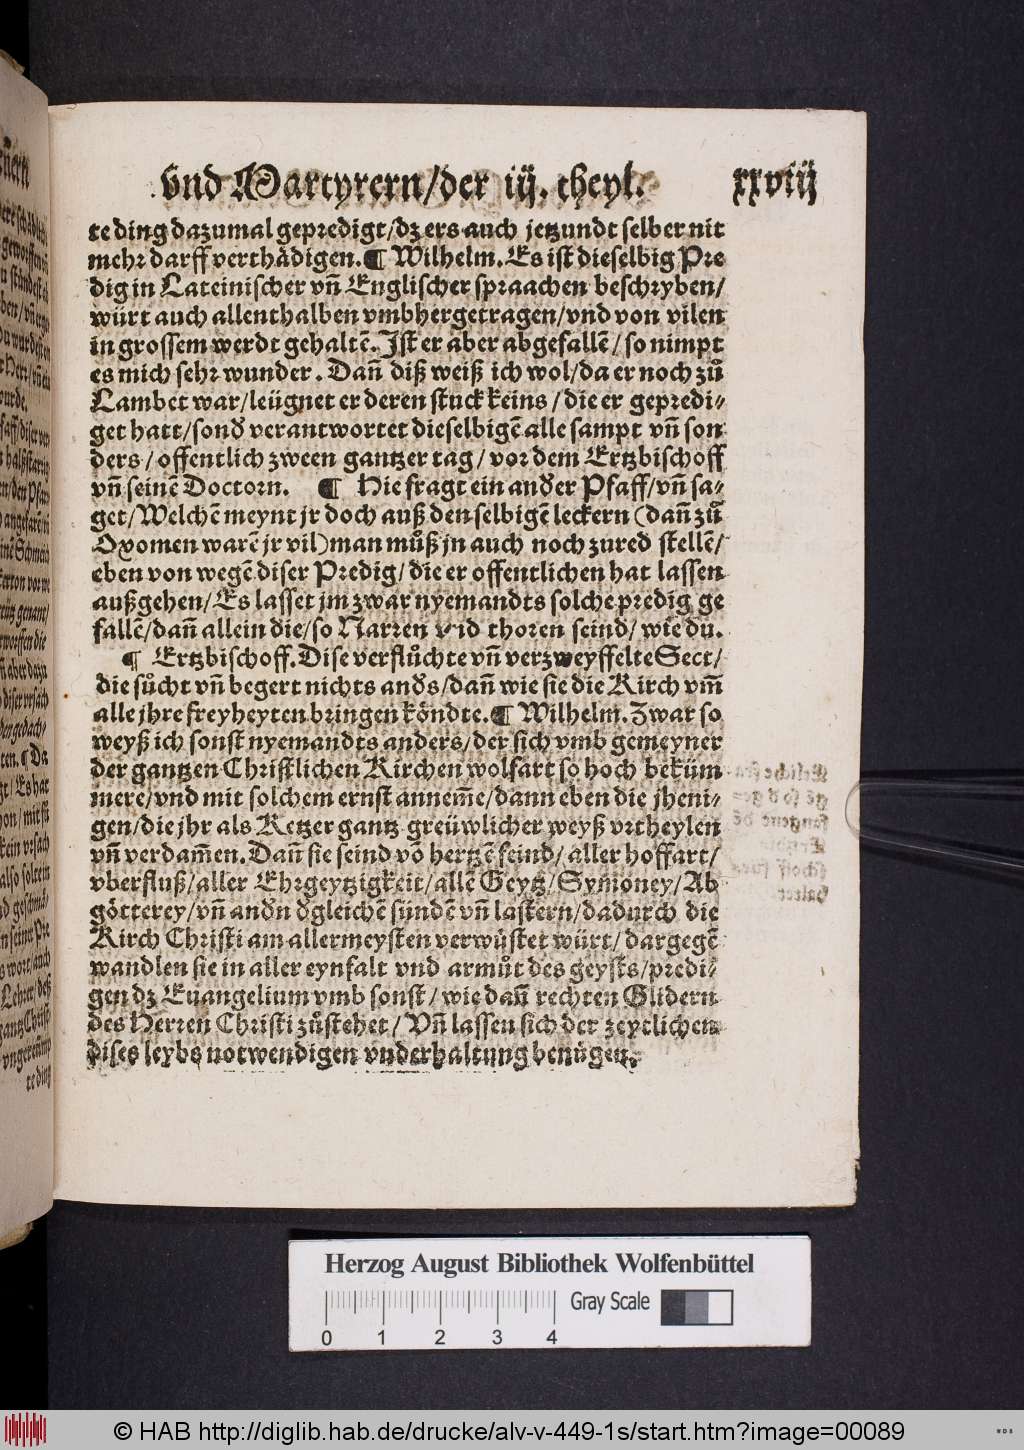 vnd Martyrern/der iij. theyl. xxviij
te ding dazumal geprediget/dz ers auch jetzundt selber nit
mehr darff verthädigen.¶ Wilhelm. Es ist dieselbig Pre
dig in Lateinischer vñ Englischer spraachen beschryben/
würt auch allenthalben vmbhergetragen/vnd von vilen
in grossem werdt gehaltē. Ist er aber abgefallē/so nimpt
es mich sehr wunder. Dañ diß weiß ich wol/da er noch zů
Lambet war/leügnet er deren stuck keins/die er gepredi⸗
get hatt/sonđ verantwortet dieselbigē alle sampt vñ son
ders/offentlich zween gantzer tag/vor dem Ertzbischoff
vñ seinē Doctorn. ¶ Hie fragt ein anđer Pfaff/vñ sa⸗
get/Welchē meynt jr doch auß den selbigē leckern (dañ zů
Oxomen warē jr vil) man můß jn auch noch zu red stellē/
eben von wegē diser Predig/die er offentlichen hat lassen
außgehen/Es lasset jm zwar nyemandts solche predig ge
fallē/dañ allein die/so Narren vnd thoren seind/wie du.
¶ Ertzbischoff. Dise verflůchte vñ verzweyffelte Sect/
die sůcht vñ begert nichts anđs/dañ wie sie die Kirch vm̄
alle jhre freyheyten bringen köndte.¶ Wilhelm. Zwar so
weyß ich sonst nyemandts anders/der sich vmb gemeyner
der gantzen Christlichen Kirchen wolfart so hoch beküm
mere/vnd mit solchem ernst annem̄e/dann eben die jheni⸗
gen/die jhr als Ketzer gantz greüwlicher weyß vrtheylen
vñ verdam̄en. Dañ sie seind vō hertzē feind/aller hoffart/
vberfluß/aller Ehrgeytzigkeit/allē Geytz/Symoney/Ab
götterey/vñ anđn đgleichē sündē vñ lastern/dadurch die
Kirch Christi am allermeysten verwüstet würt/dargegē
wandlen sie in aller eynfalt vnd armůt des geysts/predi⸗
gen dz Euangelium vmb sonst/wie dañ rechten Glidern
des Herren Christi zůstehet/Vñ lassen sich der zeytlichen
dises leybs notwendigen vnderhaltung benügen.
Herzog August Bibliothek Wolfenbüttel
Gray Scale
0 1 2 3 4
© HAB http://diglib.hab.de/drucke/alv-v-449-1s/start.htm?image=00089